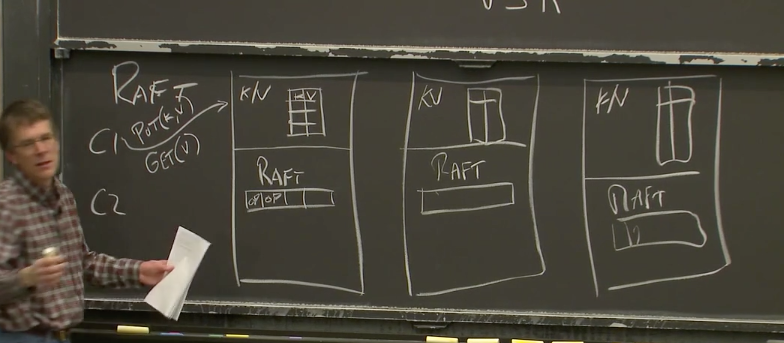 VSR
RAFT
C1 PUT(K,V)
GET(V)
C2
KV
KV
RAFT
OP OP
KV
RAFT
KV
RAFT